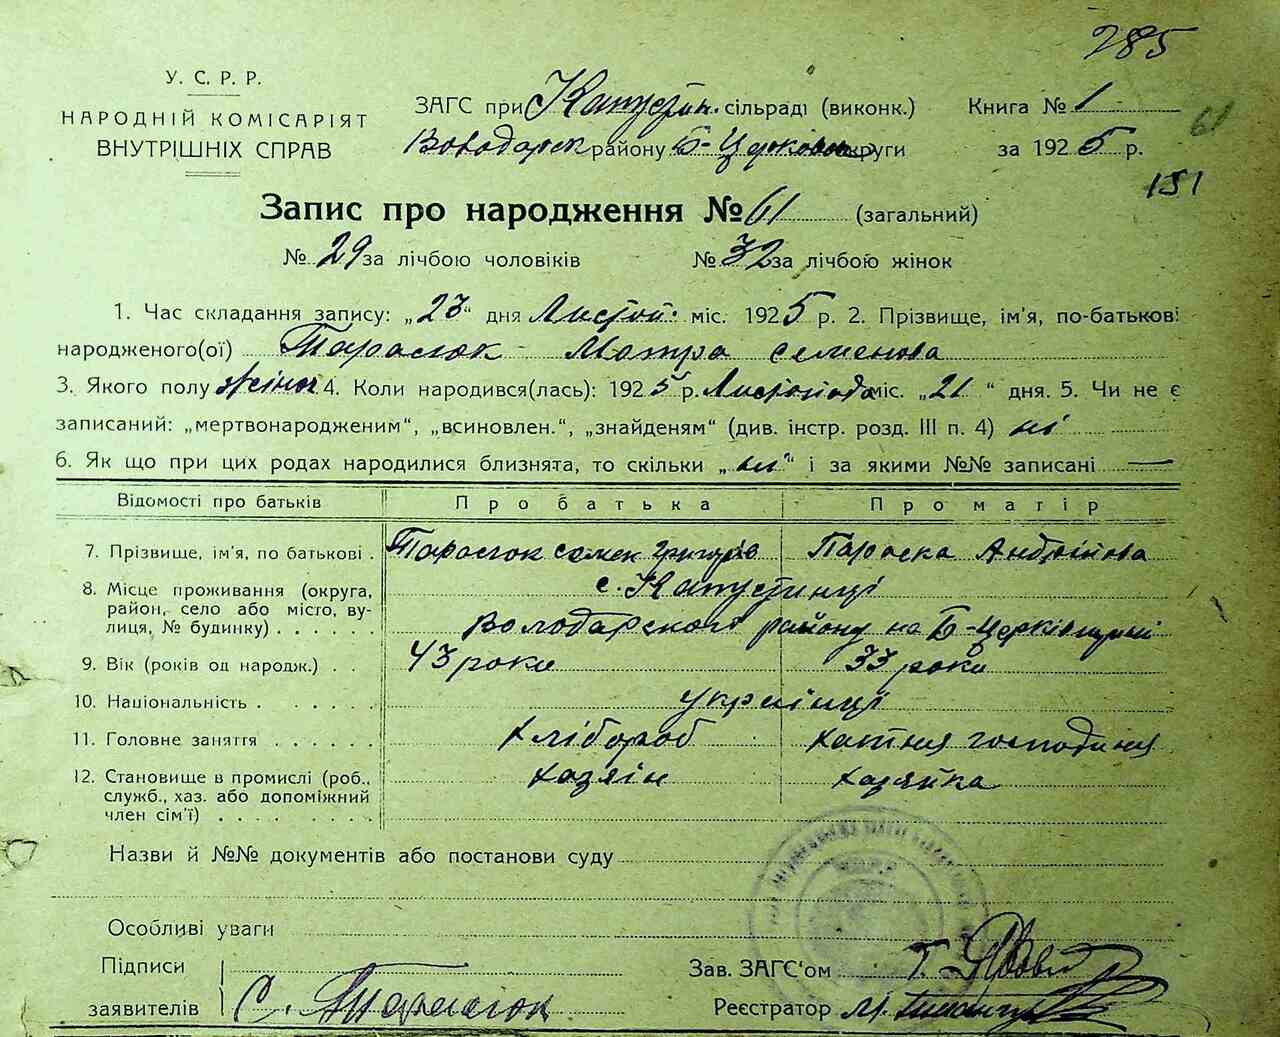 285
У. С. Р. Р.
НАРОДНІЙ КОМІСАРІЯТ
ВНУТРІШНІХ СПРАВ
ЗАГС при Капустин. сільраді (виконк.) Книга № 1
61
Володарськ району Б-Церківськ округи за 1925 р.
151
Запис про народження № 61 (загальний)
№ 29 за лічбою чоловіків № 32 за лічбою жінок
1. Час складання запису: „23“ дня Листоп. міс. 1925 р. 2. Прізвище, ім'я, по-батькові
народженого(ої) Тарасюк Мотра Семенова
3. Якого полу жіноч 4. Коли народився(лась): 1925 р. Листопада міс. „21“ дня. 5. Чи не є
записаний: „мертвонародженим“, „всиновлен.“, „знайденям“ (див. інстр. розд. III п. 4) ні
6. Як що при цих родах народилися близнята, то скільки „ні“ і за якими №№ записані —
Відомості про батьків Про батька Про матір
7. Прізвище, ім'я, по батькові . Тарасюк Семен Григорів Параска Андріійова
8. Місце проживання (округа, с. Капустинці
район, село або місто, ву-
лиця, № будинку) . . . . . . Володарского району на Б-Церківщині
9. Вік (років од народж.) . . 43 роки 33 роки
10. Національність . . . . . . українці
11. Головне заняття . . . . . . хлібороб хатня господиня
12. Становище в промислі (роб., хазяїн хазяйка
служб., хаз. або допоміжний
член сім'ї) . . . . . . . .
Назви й №№ документів або постанови суду —
Особливі уваги
Підписи Зав. ЗАГС'ом Г.
заявителів С. Тарасюк Реєстратор М.